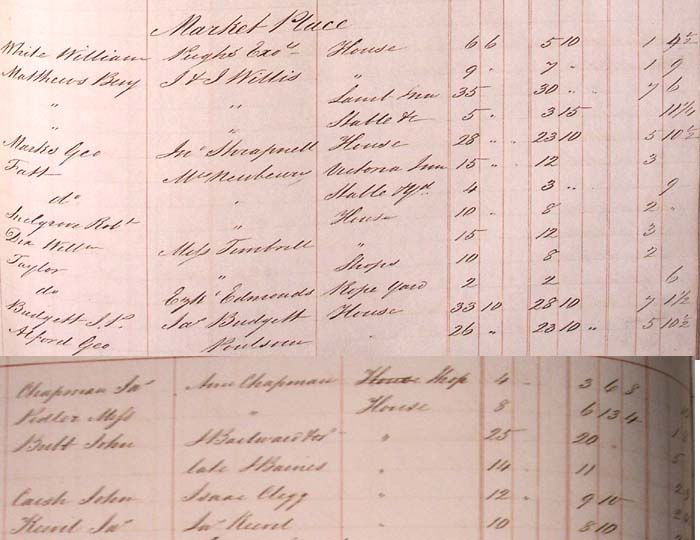 Market Place
White William Pugh's Exors House 6 6 5 10 1 4½
Matthews Benj J & J Willis " 9 " 7 " 1 9
" " Lamb Inn 35 30 " " 7 6
" " Stable &c 5 " 3 15 11¼
Marks Geo Jno Shrapnell House 28 " " 23 10 5 10½
Tatt Mrs Newbury Victoria Inn 15 " 12 3
do " Stable Yd 4 3 " 9
Robt " House 10 " 8 2 "
Dix Willm Miss Timbrell " 15 12 3
Taylor " Shops 10 8 2
do Ezk Edmonds Rope Yard 2 2 6
Budgett J.P. Jas Budgett House 33 10 28 10 7 1½
Alford Geo Poulson 26 " 23 10 " 5 10½
Chapman Jas Ann Chapman House Shop 4 3 6 8
Pidler Miss " House 8 6 13 4
Bubb John " 25 20
late J Baines " 14 11
John Isaac Clegg " 12 " 9 10
Keevil Jas Jas Keevil " 10 8 10